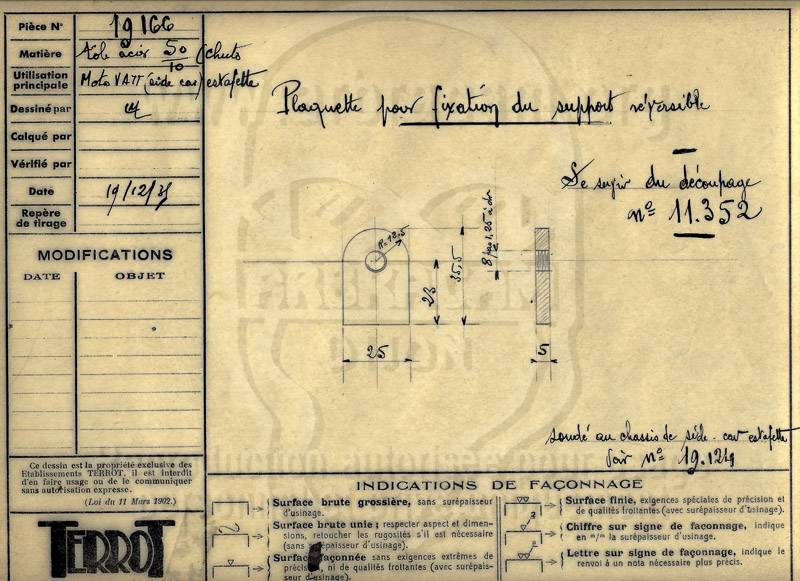 Pièce N° 19166
Matière Tole acier 50/10 (chute
Utilisation principale Moto VATT (side car) estafette
Dessiné par
Calqué par
Vérifié par
Date 19/12/35
Repère de tirage
MODIFICATIONS
DATE OBJET
Ce dessin est la propriété exclusive des
Etablissements TERROT, il est interdit
d'en faire usage ou de le communiquer
sans autorisation expresse.
(Loi du 11 Mars 1902.)
TERROT
Plaquette pour fixation du support réversible
Se servir du découpage
n° 11.352
R=12,5
23
35,5
25
5
soudé au chassis de side-car estafette
Voir n°
INDICATIONS DE FAÇONNAGE
Surface brute grossière, sans surépaisseur
d'usinage.
Surface brute unie ; respecter aspect et dimen-
sions, retoucher les rugosités s'il est nécessaire
(sans surépaisseur d'usinage).
Surface façonnée sans exigences extrêmes de
précision, ni de qualités frottantes (avec surépais-
seur d'usinage).
Surface finie, exigences spéciales de précision et
de qualités frottantes (avec surépaisseur d'usinage).
Chiffre sur signe de façonnage, indique
en m/m la surépaisseur d'usinage.
Lettre sur signe de façonnage, indique le
renvoi à un nota nécessaire plus précis.